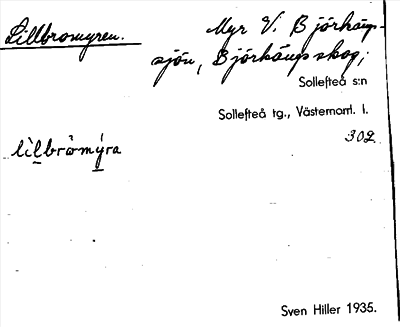 Lillbromyren.
Myr V. Björkängs-
sjön, Björkängs skog,
Sollefteå s:n
Sollefteå tg., Västernorrl. l.
302
lìlbrömýra
Sven Hiller 1935.